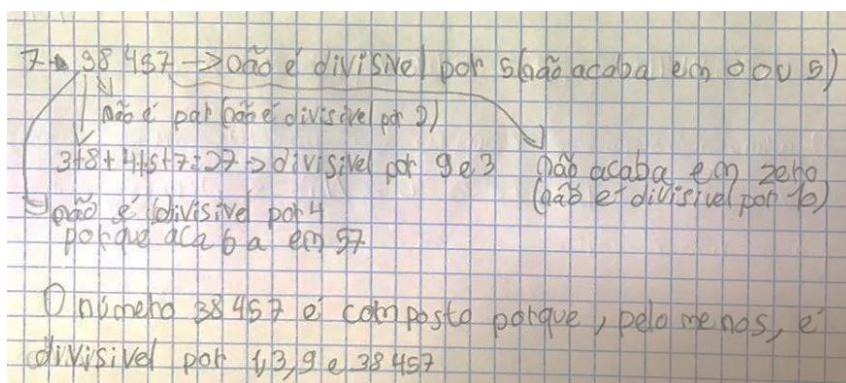 7- 38 457 -> não é divisivel por 5(não acaba em 0 ou 5)
não é par (não é divisivel por 2)
3+8+4+5+7=27 -> divisivel por 9 e 3
não acaba em zero
(não é divisivel por 10)
não é divisivel por 4
porque acaba em 57
O número 38 457 é composto porque, pelo menos, é
divisivel por 1,3,9 e 38 457